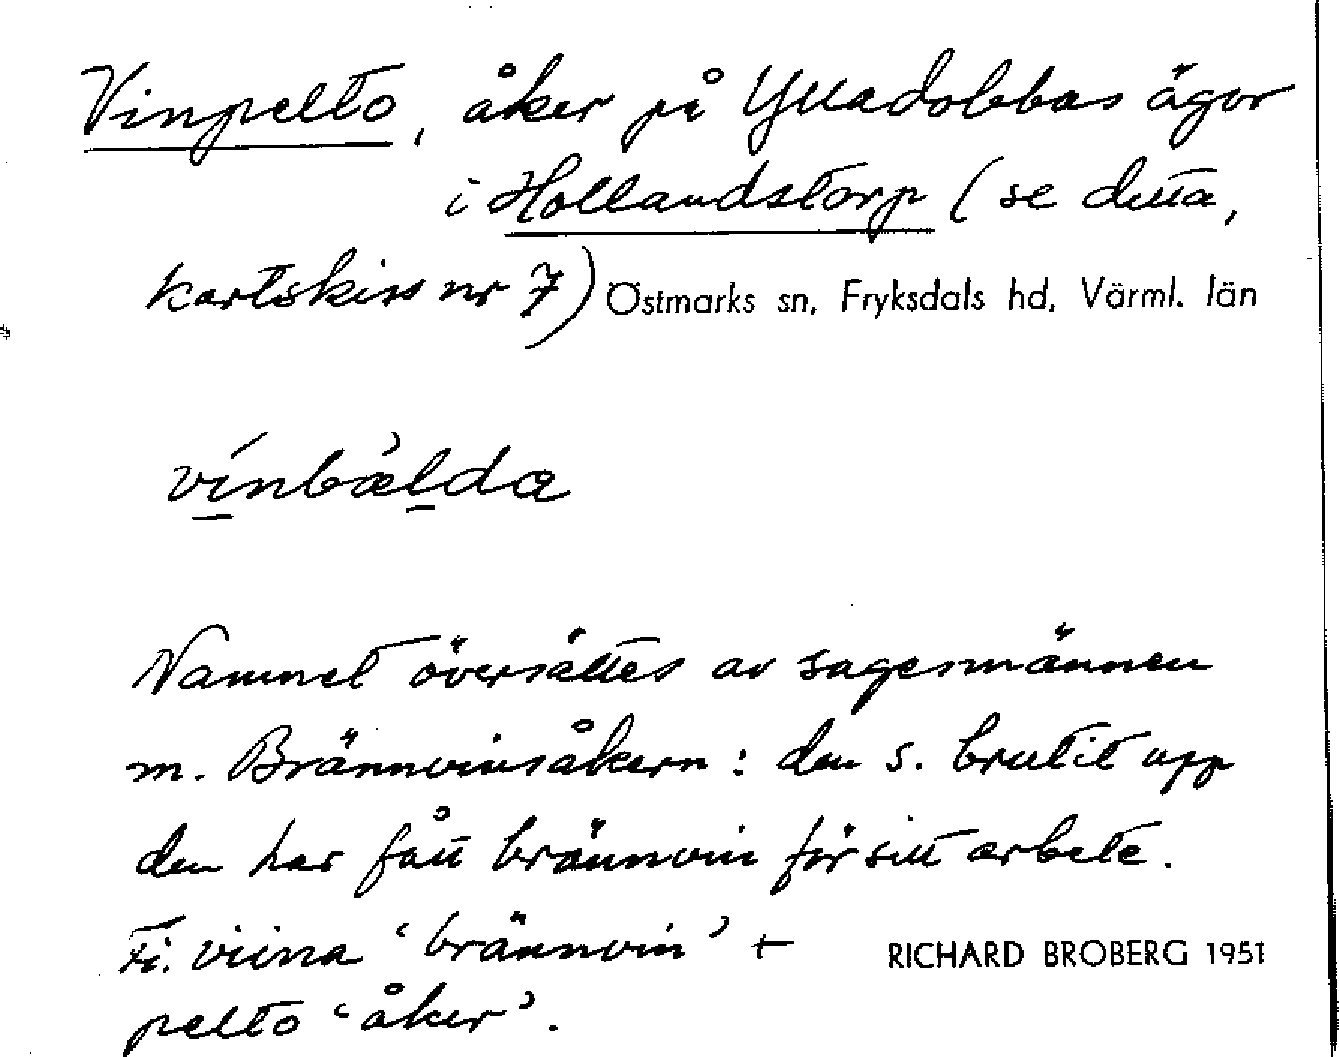 Vinpelto, åker på Yttadobbas ägor
i Hollandstorp (se detta,
kartskiss nr 7) Östmarks sn, Fryksdals hd, Värml. län
vínbæ̀lda
Namnet översättes av sagesmännen
m. Brännvinsåkern: den s. brutit upp
den har fått brännvin för sitt arbete.
Fi. viina ‘brännvin’ +
RICHARD BROBERG 1951
pelto ‘åker’.